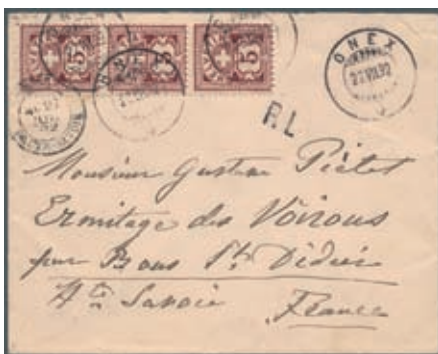 5 5 5
ONEX
ONEX
R.L
Monsieur Gustave Pictet
Ermitage des Voirons
par Bons St Didier
Hte Savoie France